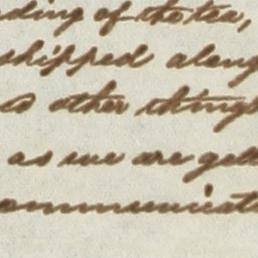 ding of the tea,
shipped along
as other things
as we are gett
ommunicati